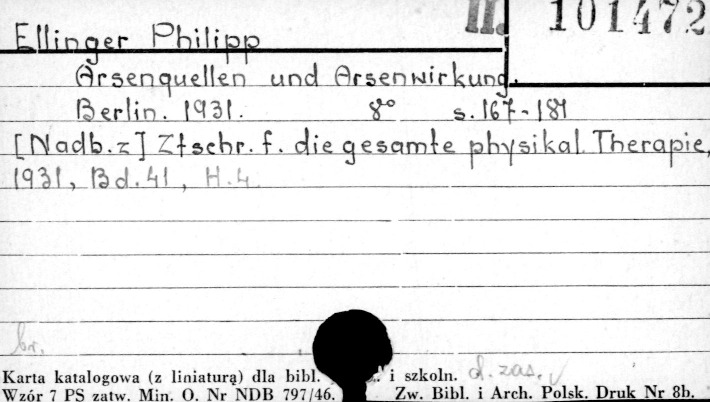 II. 101472
Ellinger Philipp
Arsenquellen und Arsenwirkung.
Berlin. 1931. 8° s. 167-181
[Nadb. z] Ztschr. f. die gesamte physikal. Therapie,
1931, Bd. 41, H. 4
br.
Karta katalogowa (z liniaturą) dla bibl. i szkoln. d. zas.
Wzór 7 PS zatw. Min. O. Nr NDB 797/46. Zw. Bibl. i Arch. Polsk. Druk Nr 8b.